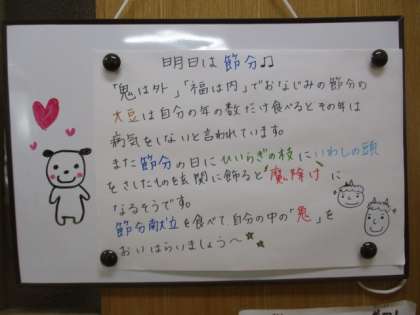 明日は 節分♫
「鬼は外」「福は内」でおなじみの節分の
大豆は自分の年の数だけ食べるとその年は
病気をしないと言われています。
また節分の日にひいらぎの枝にいわしの頭
をさしたものを玄関に飾ると"魔除け"に
なるそうです。
節分献立を食べて自分の中の「鬼」を
おいはらいましょう〜☆☆